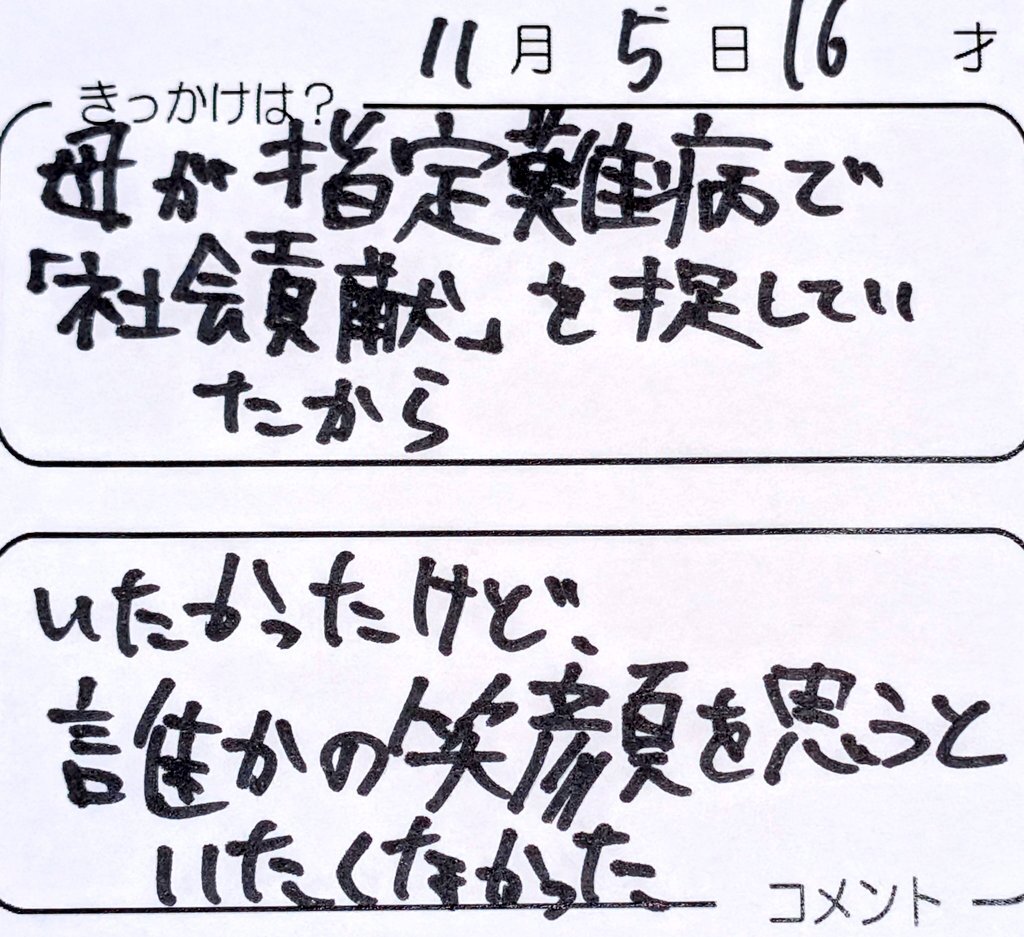 11月5日16才
きっかけは?
母が指定難病で
「社会貢献」を捉してい
たから
いたかったけど、
誰かの笑顔を思うと
いたくなかった
コメント